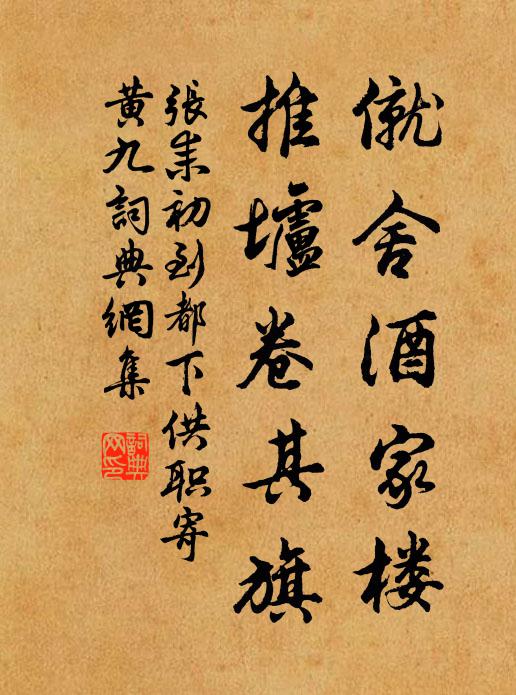 僦舍酒家楼
推壚卷其旗
張耒初到都下供职寄
黄九詞典網集
詞典
网印